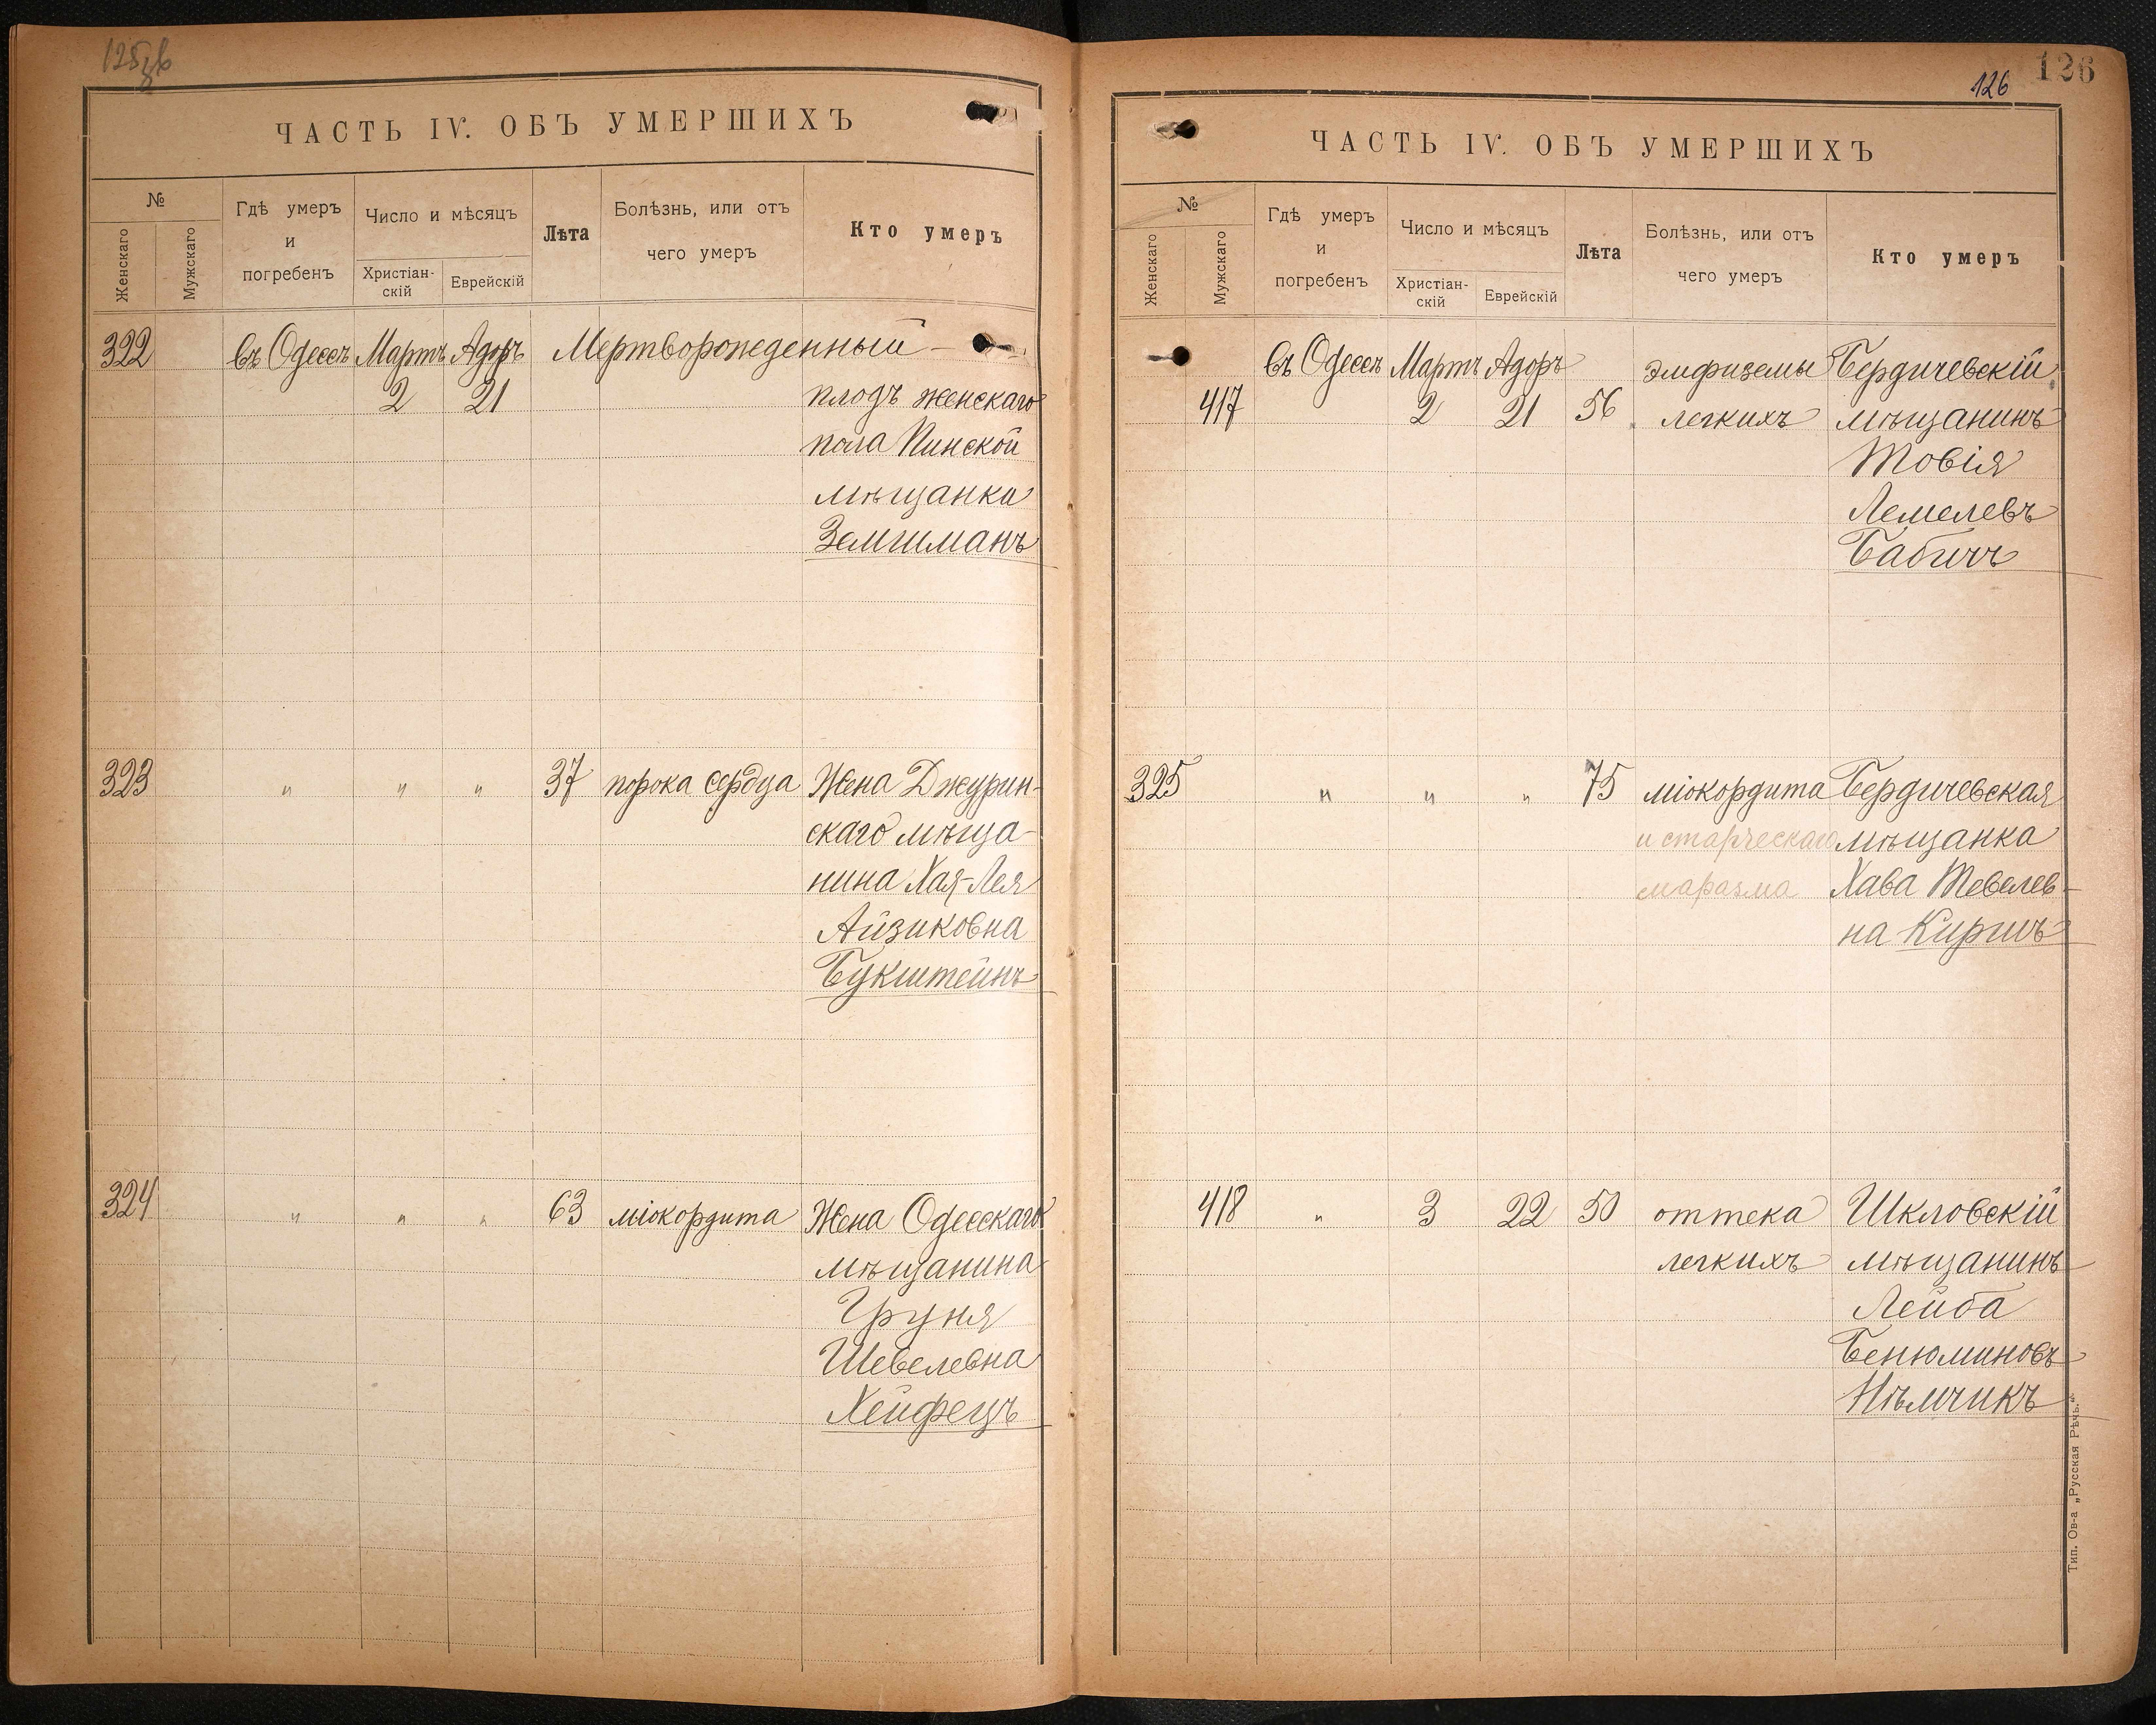 ЧАСТЬ IV. ОБЪ УМЕРШИХЪ
№
Женскаго
Мужскаго
Гдѣ умеръ
и
погребенъ
Число и мѣсяцъ
Христіан-
скій
Еврейскій
Лѣта
Болѣзнь, или отъ
чего умеръ
Кто умеръ
322 въ Одессѣ Мартъ Адоръ Мертворожденный
2 21 плодъ женскаго
пола Пинской
мѣщанки
323 " " " 37 порока сердца Жена Джурин-
скаго мѣща-
нина Хая-Лея
Айзиковна
Букштейнъ
324 " " " 63 міокордита Жена Одесскаго
мѣщанина
Груня
Шевелевна
Хейфецъ
126
126
ЧАСТЬ IV. ОБЪ УМЕРШИХЪ
№
Женскаго
Мужскаго
Гдѣ умеръ
и
погребенъ
Число и мѣсяцъ
Христіан-
скій
Еврейскій
Лѣта
Болѣзнь, или отъ
чего умеръ
Кто умеръ
въ Одессѣ Мартъ Адоръ эмфиземы Бердичевскій
417 2 21 56 легкихъ мѣщанинъ
Товія
Лемелевъ
Бабичъ
325 " " " 75 міокордита Бердичевская
и старческаго мѣщанка
маразма Хава Тевелев-
на Киришъ
418 " 3 22 50 оттека Шкловскій
легкихъ мѣщанинъ
Лейба
Бенюминовъ
Нѣмчикъ
Тип. Ов-а „Русская Рѣчь.“